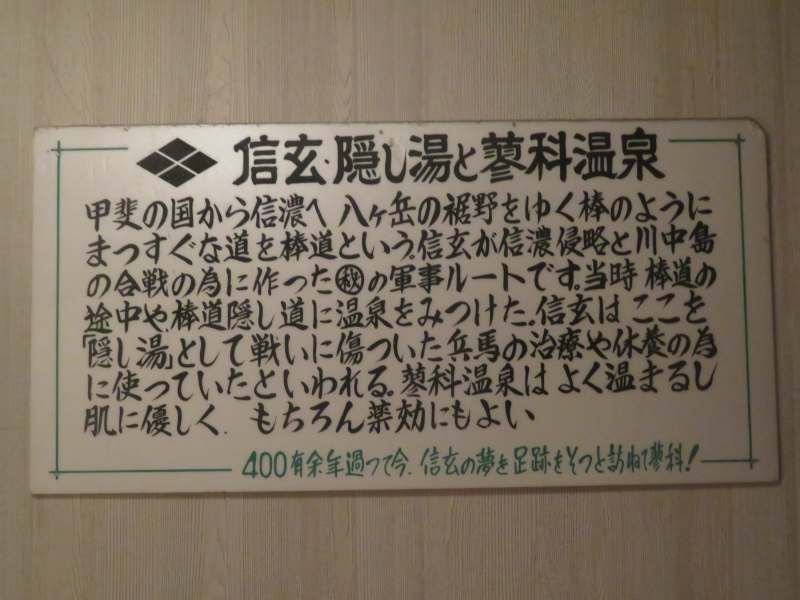 信玄・隠し湯と蓼科温泉
甲斐の国から信濃へ 八ヶ岳の裾野をゆく棒のように
まっすぐな道を棒道という。信玄が信濃侵略と川中島
の合戦の為に作った㊙の軍事ルートです。当時 棒道の
途中や、棒道隠し道に温泉をみつけた。信玄は ここを
「隠し湯」として戦いに傷ついた兵馬の治療や休養の為
に使っていたといわれる。蓼科温泉は よく温まるし
肌に優しく、もちろん薬効にもよい
400有余年過って今、信玄の夢を足跡をそっと訪ねて蓼科!